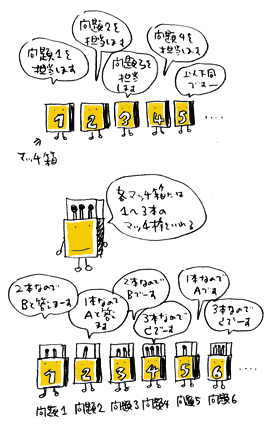 問題1を
担当します
問題2を
担当します
問題3を
担当
します
問題4を
担当します
以下同
です
1
2
3
4
5
....
マッチ箱
各マッチ箱には
1〜3本の
マッチ棒をいれる
2本なので
Bと答えます
1本なので
Aと答え
ます
2本なので
Bでーす
3本なので
Cでーす
1本なので
Aです
3本なので
Cでーす
1
2
3
4
5
6
....
問題1
問題2
問題3
問題4
問題5
問題6